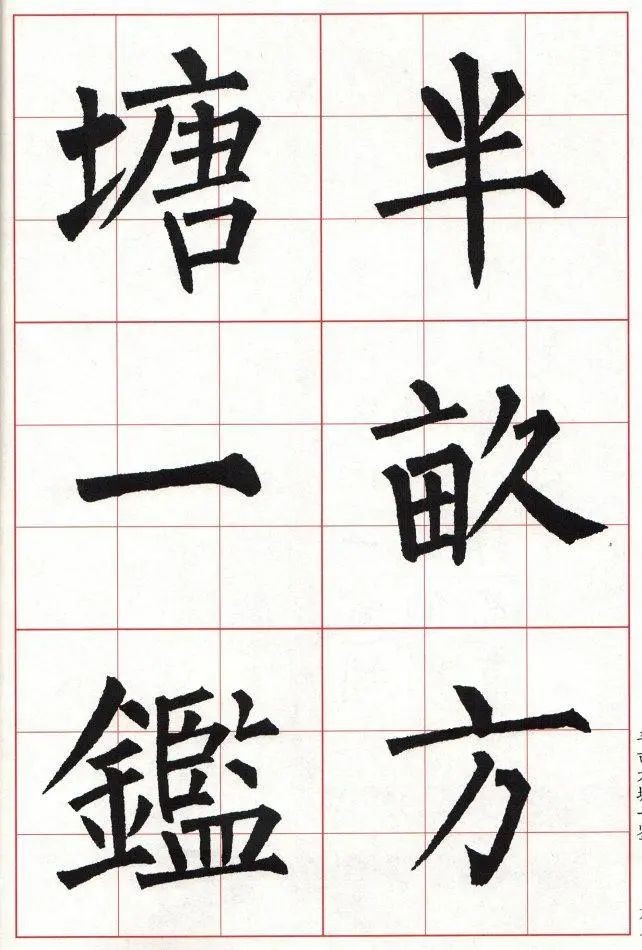 半畝方
塘一鑑